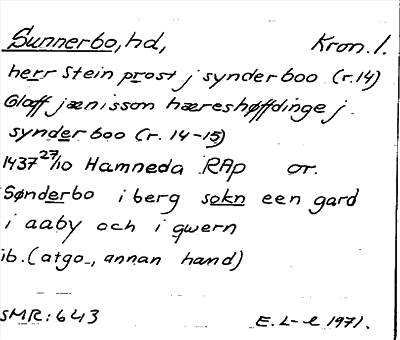 Sunnerbo, hd, Kron. l.
herr Stein prost j synderboo (r.14)
Olaff jænisson hæreshøffdinge j
synderboo (r. 14-15)
1437 27/10 Hamneda RAp or.
Sønderbo i berg sokn een gard
i aaby och i qwern
ib. (atgo-, annan hand)
SMR: 643 E. L-l 1971.